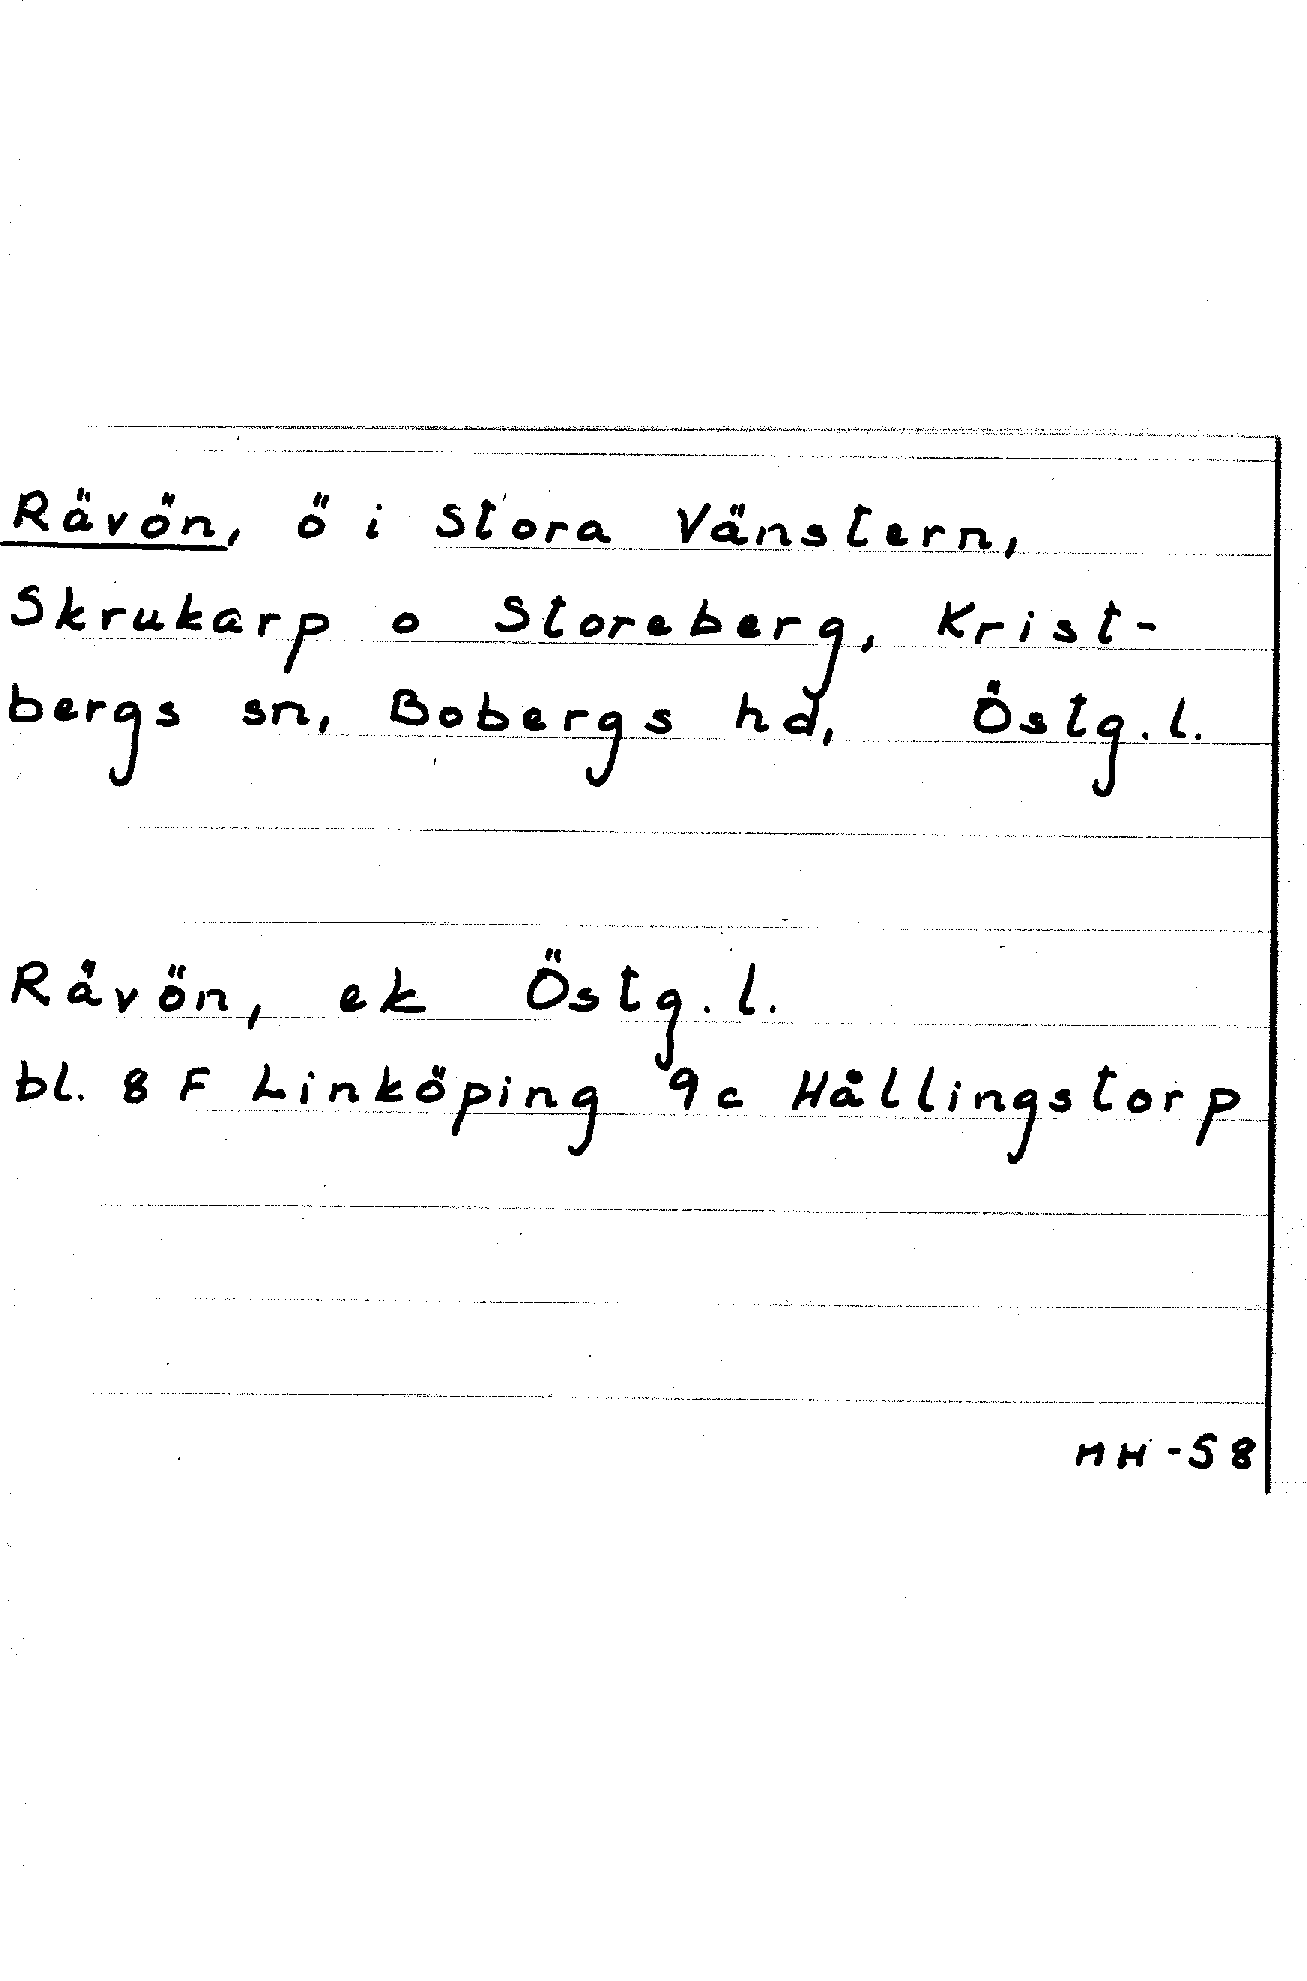 Rävön, ö i Stora Vänstern,
Skrukarp o Storeberg, Krist-
bergs sn, Bobergs hd, Östg.l.
Råvön, ek Östg.l.
bl. 8 F Linköping 9c Hållingstorp
MH-58